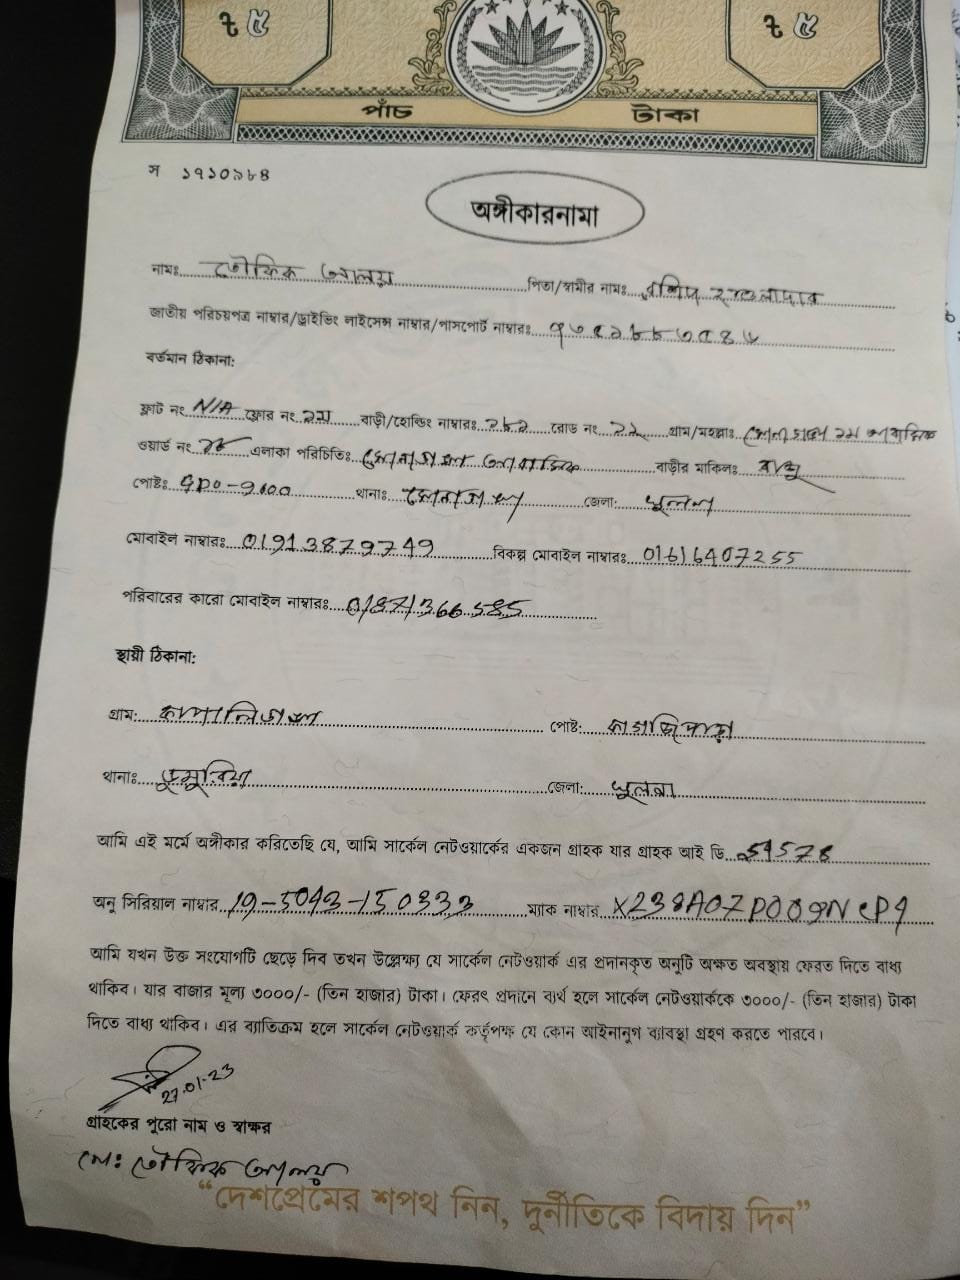 ৳ ৫ ৳ ৫
পাঁচ টাকা
স ১৭১০৯৮৪
অঙ্গীকারনামা
নামঃ তৌফিক আলম পিতা/স্বামীর নামঃ রশিদ হাওলাদার
জাতীয় পরিচয়পত্র নাম্বার/ড্রাইভিং লাইসেন্স নাম্বার/পাসপোর্ট নাম্বারঃ
বর্তমান ঠিকানা:
ফ্লাট নং N/A ফ্লোর নং ২য় বাড়ী/হোল্ডিং নাম্বারঃ ২৮৯ রোড নং গ্রাম/মহল্লাঃ
ওয়ার্ড নং এলাকা পরিচিতিঃ আবাসিক বাড়ীর মালিকঃ
পোষ্টঃ GPO-9100 থানাঃ জেলা: খুলনা
মোবাইল নাম্বারঃ 01913879749 বিকল্প মোবাইল নাম্বারঃ 01616407255
পরিবারের কারো মোবাইল নাম্বারঃ 01871366585
স্থায়ী ঠিকানা:
গ্রাম: পোষ্ট:
থানাঃ ডুমুরিয়া জেলা: খুলনা
আমি এই মর্মে অঙ্গীকার করিতেছি যে, আমি সার্কেল নেটওয়ার্কের একজন গ্রাহক যার গ্রাহক আই ডি
অনু সিরিয়াল নাম্বার 19-5043-150333 ম্যাক নাম্বার
আমি যখন উক্ত সংযোগটি ছেড়ে দিব তখন উল্লেক্ষ্য যে সার্কেল নেটওয়ার্ক এর প্রদানকৃত অনুটি অক্ষত অবস্থায় ফেরত দিতে বাধ্য
থাকিব। যার বাজার মূল্য ৩০০০/- (তিন হাজার) টাকা। ফেরৎ প্রদানে ব্যর্থ হলে সার্কেল নেটওয়ার্ককে ৩০০০/- (তিন হাজার) টাকা
দিতে বাধ্য থাকিব। এর ব্যাতিক্রম হলে সার্কেল নেটওয়ার্ক কর্তৃপক্ষ যে কোন আইনানুগ ব্যাবস্থা গ্রহণ করতে পারবে।
27.01.23
গ্রাহকের পুরো নাম ও স্বাক্ষর
মোঃ তৌফিক আলম
“দেশপ্রেমের শপথ নিন, দুর্নীতিকে বিদায় দিন”